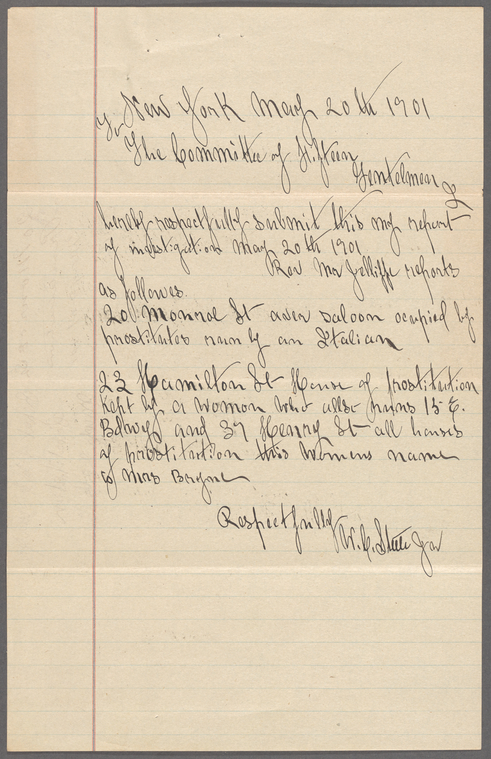 New York May 20th 1901
To
The Committe of Fifteen
Gentelmen I
hereby respectfully submit this my report
of investigation May 20th 1901
Rev Mr Jelliffe reports
as followes
20 Monroe St over saloon ocupied by
prostitutes run by an Italian
23 Hamilton St House of prostitution
kept by a women who allso runs 15 E.
Bdwy and 37 Henry St all houses
of prostitution this womens name
is Mrs
Respectfully
W. C. Steele Jr